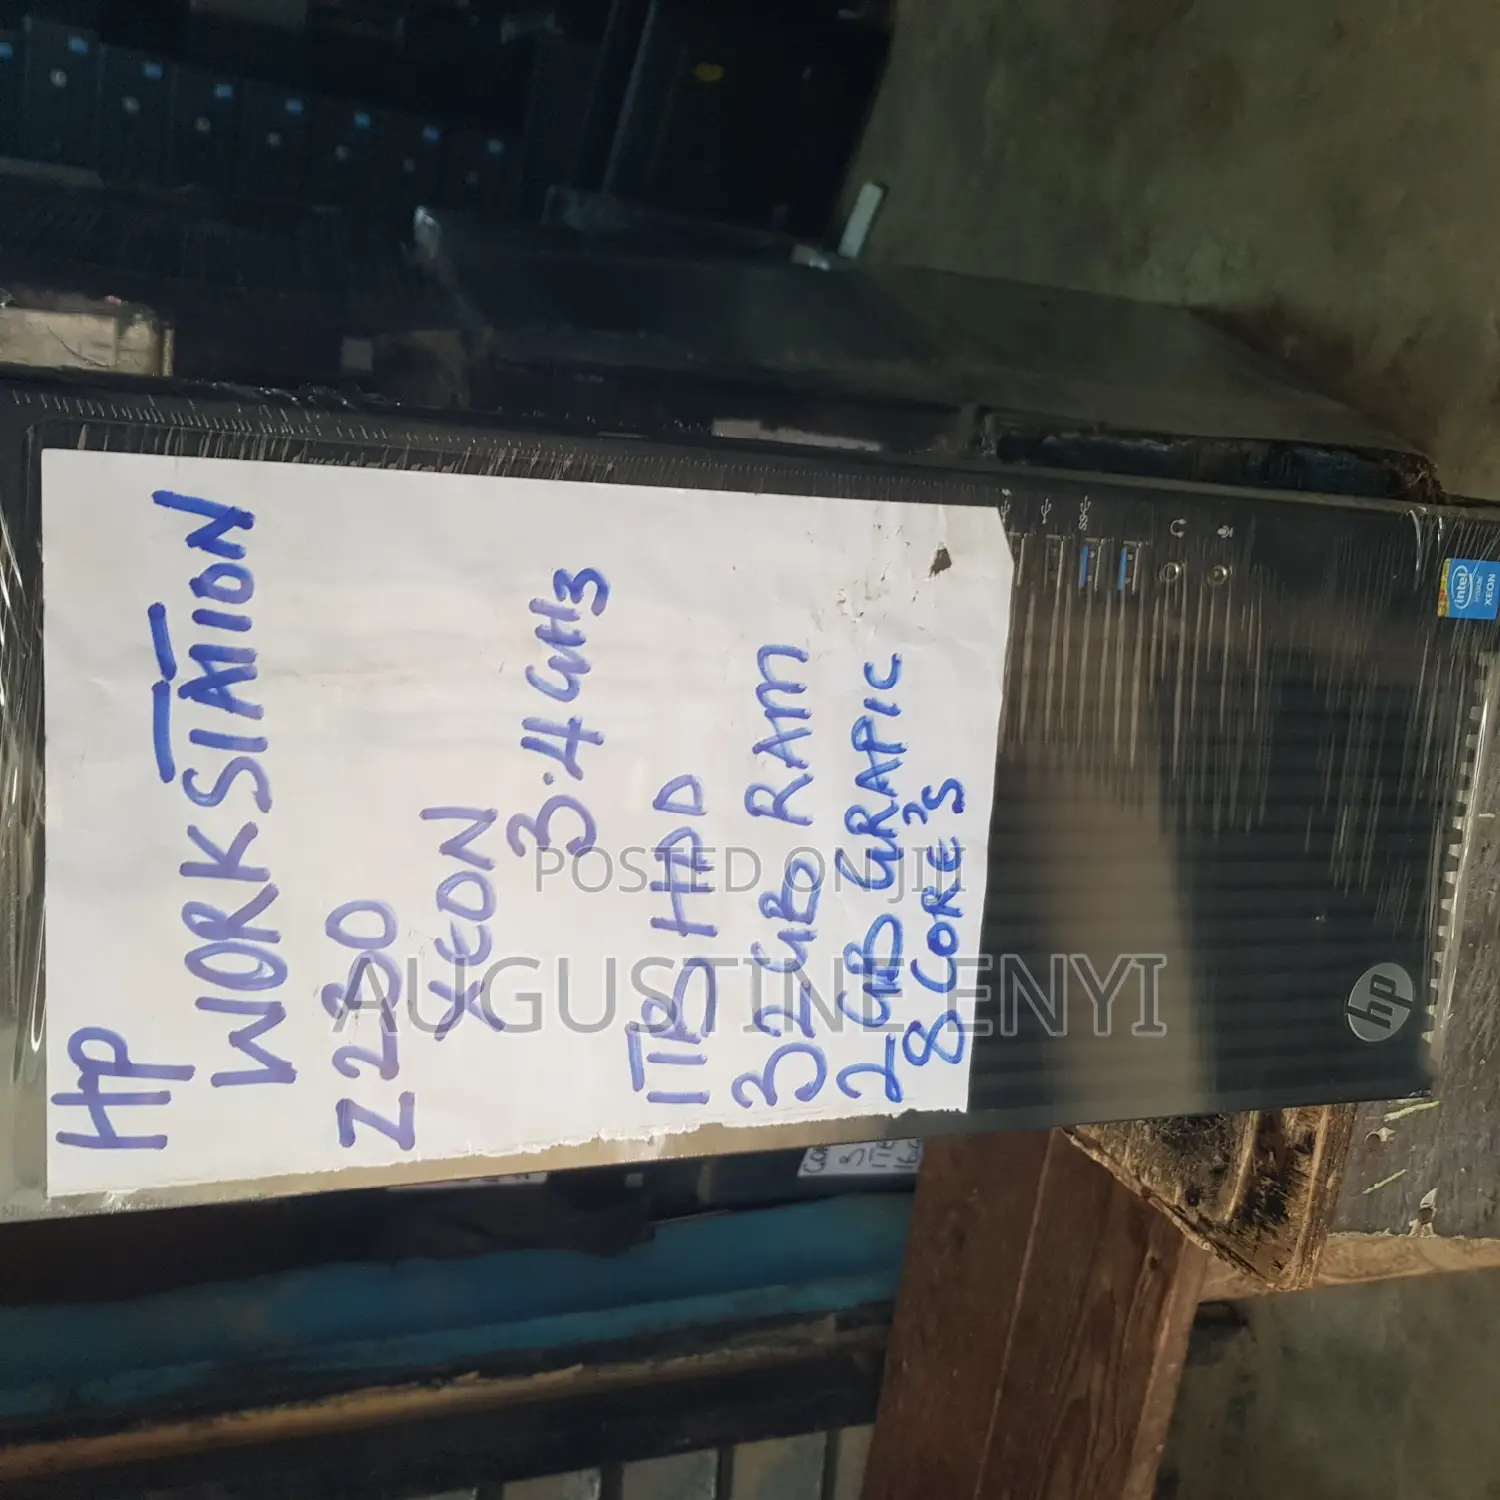 HP
WORKSTATION
Z230
XEON
3.4GHz
1TB HDD
32GB RAM
2GB GRAPIC
8 CORE'S
POSTED ON JIJI
AUGUSTINE ENYI
hp
intel
inside
XEON